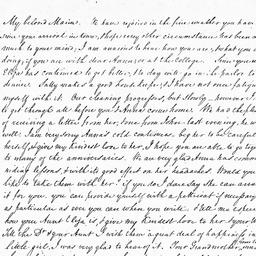 My beloved Maime. We have rejoice in the fine weather you have
since your arrival in town, I hope every other circumstance has been a
much to your mind; I am anxious to hear how you are, & what you a
doing; if you are with dear Aunt or at the College. Since you
Eliza has continued to get better; to day will go in the parlor to
dinner. Sally makes a good housekeeper; & I have not once fatig
myself with it. Our cleaning progresses, but slowly, however I
to get through all before you & Anna come home. We had the plea
of receiving a letter from her, & one from John last evening, he
well: I am very sorry Anna's cold continues beg her to be careful
herself & give my kindest love to her, I hope you are able to go
to many of the anniversaries. We are very glad Anna has comme
riding lessons & with its good effect on her headaches. Would you
like to take them with her? if you do, I dare say she can
it for you. you can provide yourself with a petticoat if necessary
as particular as ever you can when you write & tell me
how your Aunt Eliza is, & give my kindest love to her & your
Tell the Dr & your Aunt I wish them a great deal of happiness in
little girl, I was very glad to hear of it. Your Grandmother